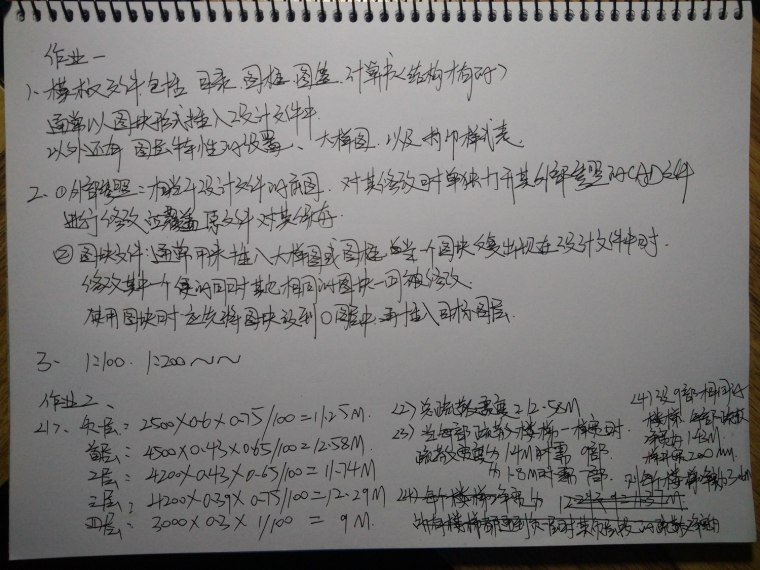 作业一
1、模板文件包括 目录、图框、图签、计算书(结构才有的)
通常以图块形式插入设计文件中
以外还有 图层特性的设置、大样图、以及打印样式表
2、①外部参照:相当于设计文件的底图. 对其修改时单独打开其外部参照的CAD文件
进行修改 覆盖原文件对其保存.
②图块文件:通常用来插入大样图或图框 当一个图块复出现在设计文件中时.
修改其中一个 的同时其他相同的图块一同被修改.
使用图块时应先将图块放到0图层中 再插入目标图层.
3、 1:100. 1:200~~
作业二、
(1)、负一层: 2500×0.6×0.75/100=11.25M.
首层: 4500×0.43×0.65/100=12.58M.
2层: 4200×0.43×0.65/100=11.74M
三层: 4200×0.39×0.75/100=12.29M
四层: 3000×0.3×1/100 = 9M.
(2)总疏散宽度=12.58M
(3)当每部疏散楼梯一样宽时.
疏散宽度为1.4M时需 9部.
为1.8M时需 7部.
(4)设9部相同的
楼梯. 每部疏散
净宽为1.43M.
梯井宽200MM.